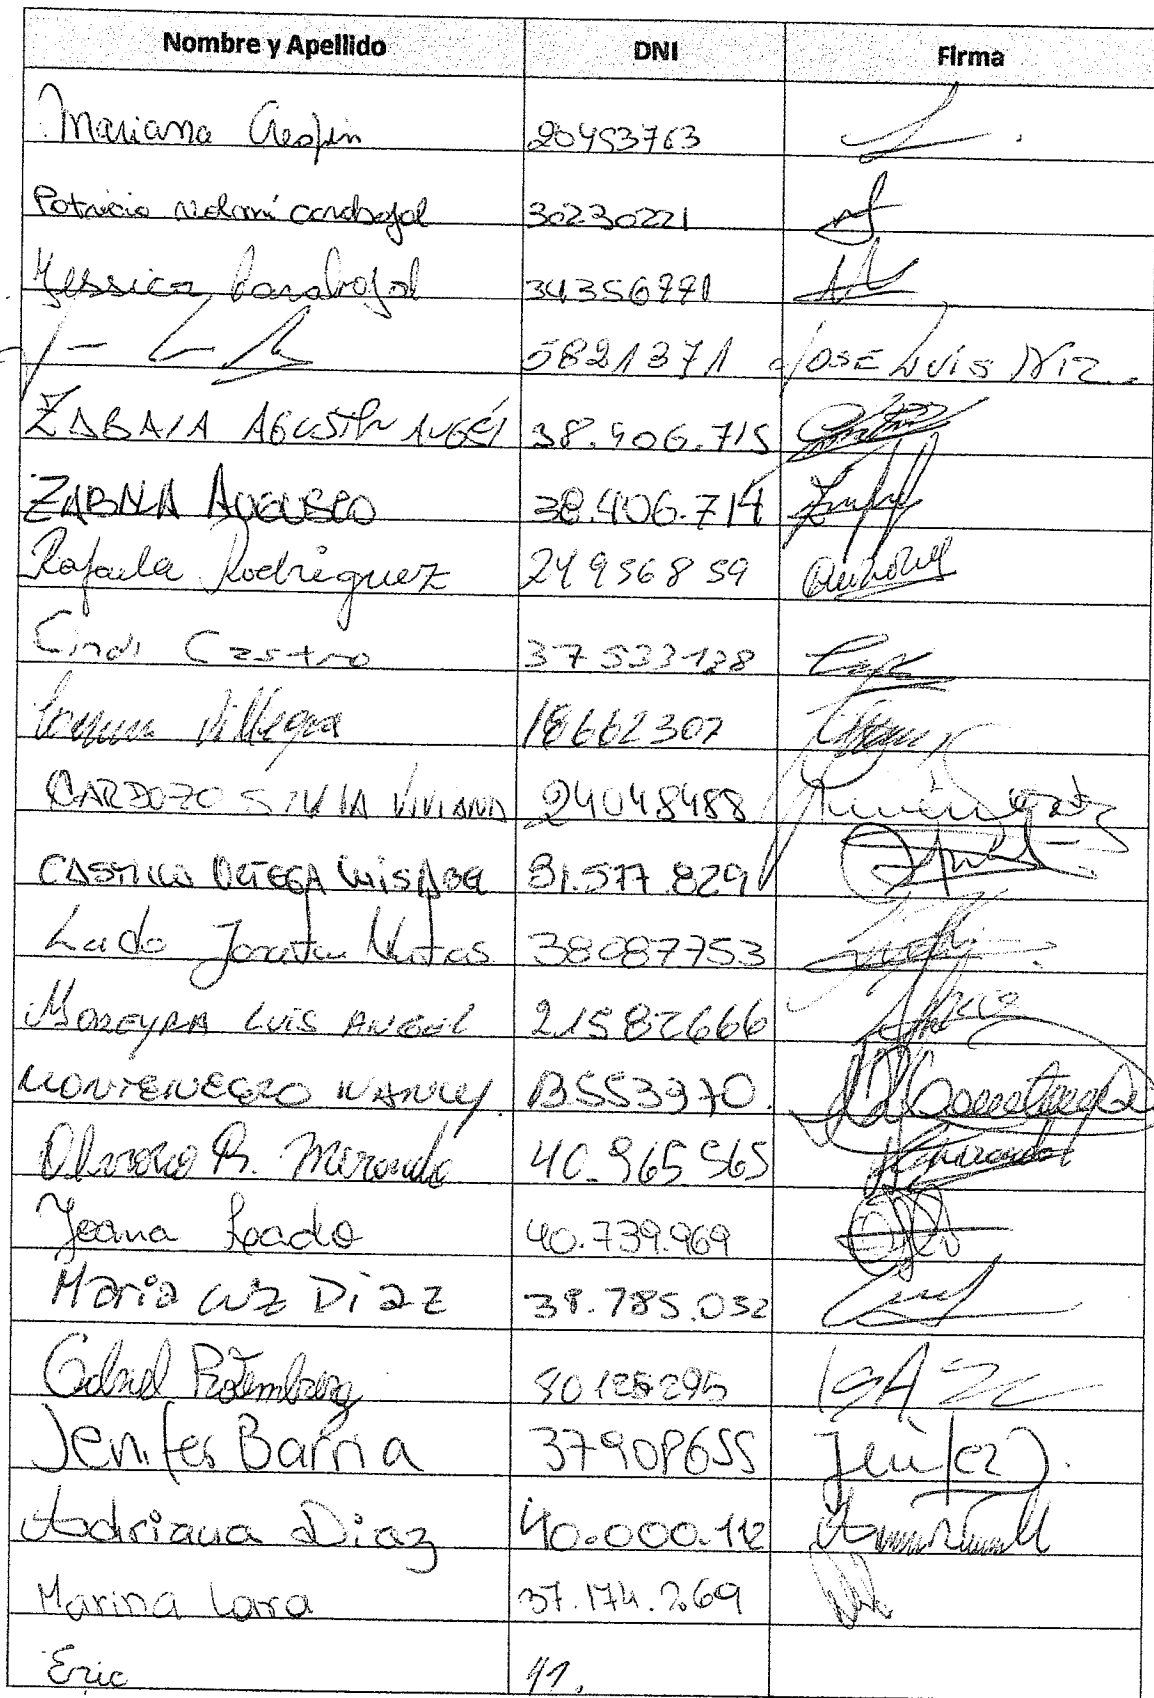 Nombre y Apellido DNI Firma
Mariana Crespin 20453763
Patricia Nohemí Carabajal 30230221
Yessica Carabajal 34356991
5821371 JOSE LUIS NIZ
ZABALA AGUSTIN ANGEL 38.406.715
ZABALA AUGUSTO 38.406.714
Rafaela Rodriguez 24956859
Cindi Castro 37533128
Villegas 18662307
CARDOZO SILVIA VIVIANA 24048488
CASTILLO ORTEGA LUIS 31.577.829
Lado Jonatan Matias 38087753
MOREYRA LUIS ANGEL 21582666
MONTENEGRO NANCY. 13553970.
Alvaro R. Miranda 40.965.565
Yoana Loado 40.739.969
Maria Luz Diaz 38.785.032
Gabriel Rotemberg 30125295
Jenifer Barria 37908655 Jenifer
Adriana Diaz 40.000.112
Marina Lara 37.174.269
Eric 41.